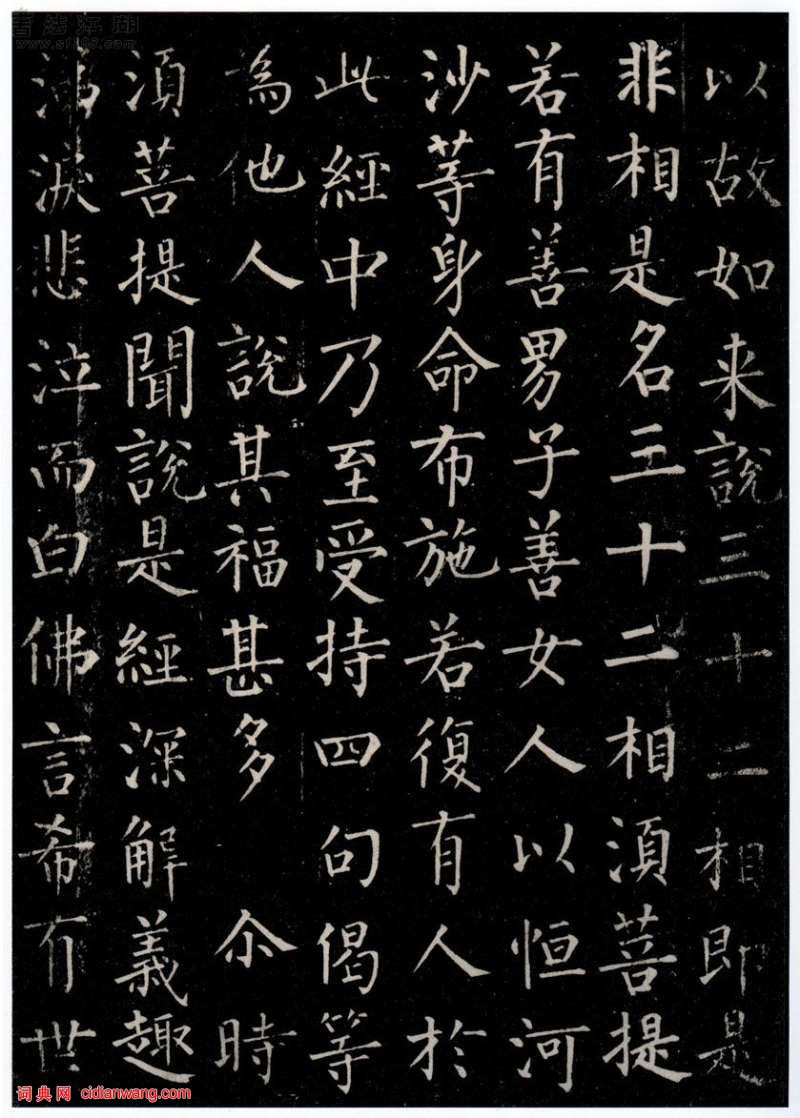 以故如来説三十二相即是
非相是名三十二相湏菩提
若有善男子善女人以恒河
沙等身命布施若復有人於
此經中乃至受持四句偈等
為他人説其福甚多 尒時
湏菩提聞説是經深解義趣
涕淚悲泣而白佛言希有世
词典网 cidianwang.com